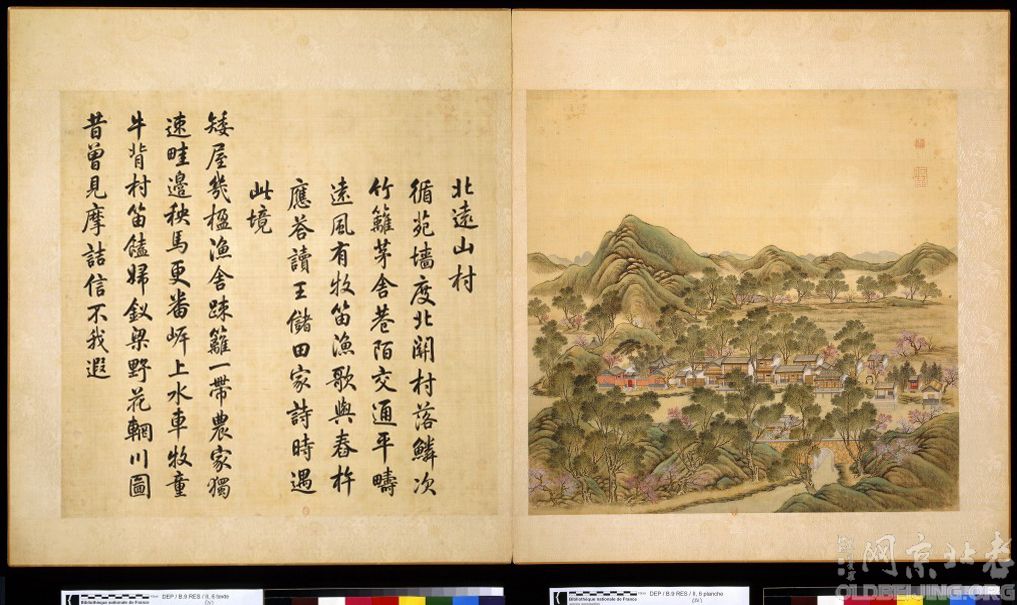 北遠山村
循苑墻度北關村落鱗次
竹籬茅舍巷陌交通平疇
遠風有牧笛漁歌與舂杵
應荅讀王儲田家詩時遇
此境
矮屋幾楹漁舍踈籬一帶農家獨
速畦邊秧馬更番岸上水車牧童
牛背村笛饁婦釵梁野花輞川圖
昔曾見摩詰信不我遐
DEP / B.9 RES / II, 6 texte
Bibliothèque nationale de France
DEP / B.9 RES / II, 6 planche
Bibliothèque nationale de France
老北京网
OLDBEIJING.ORG